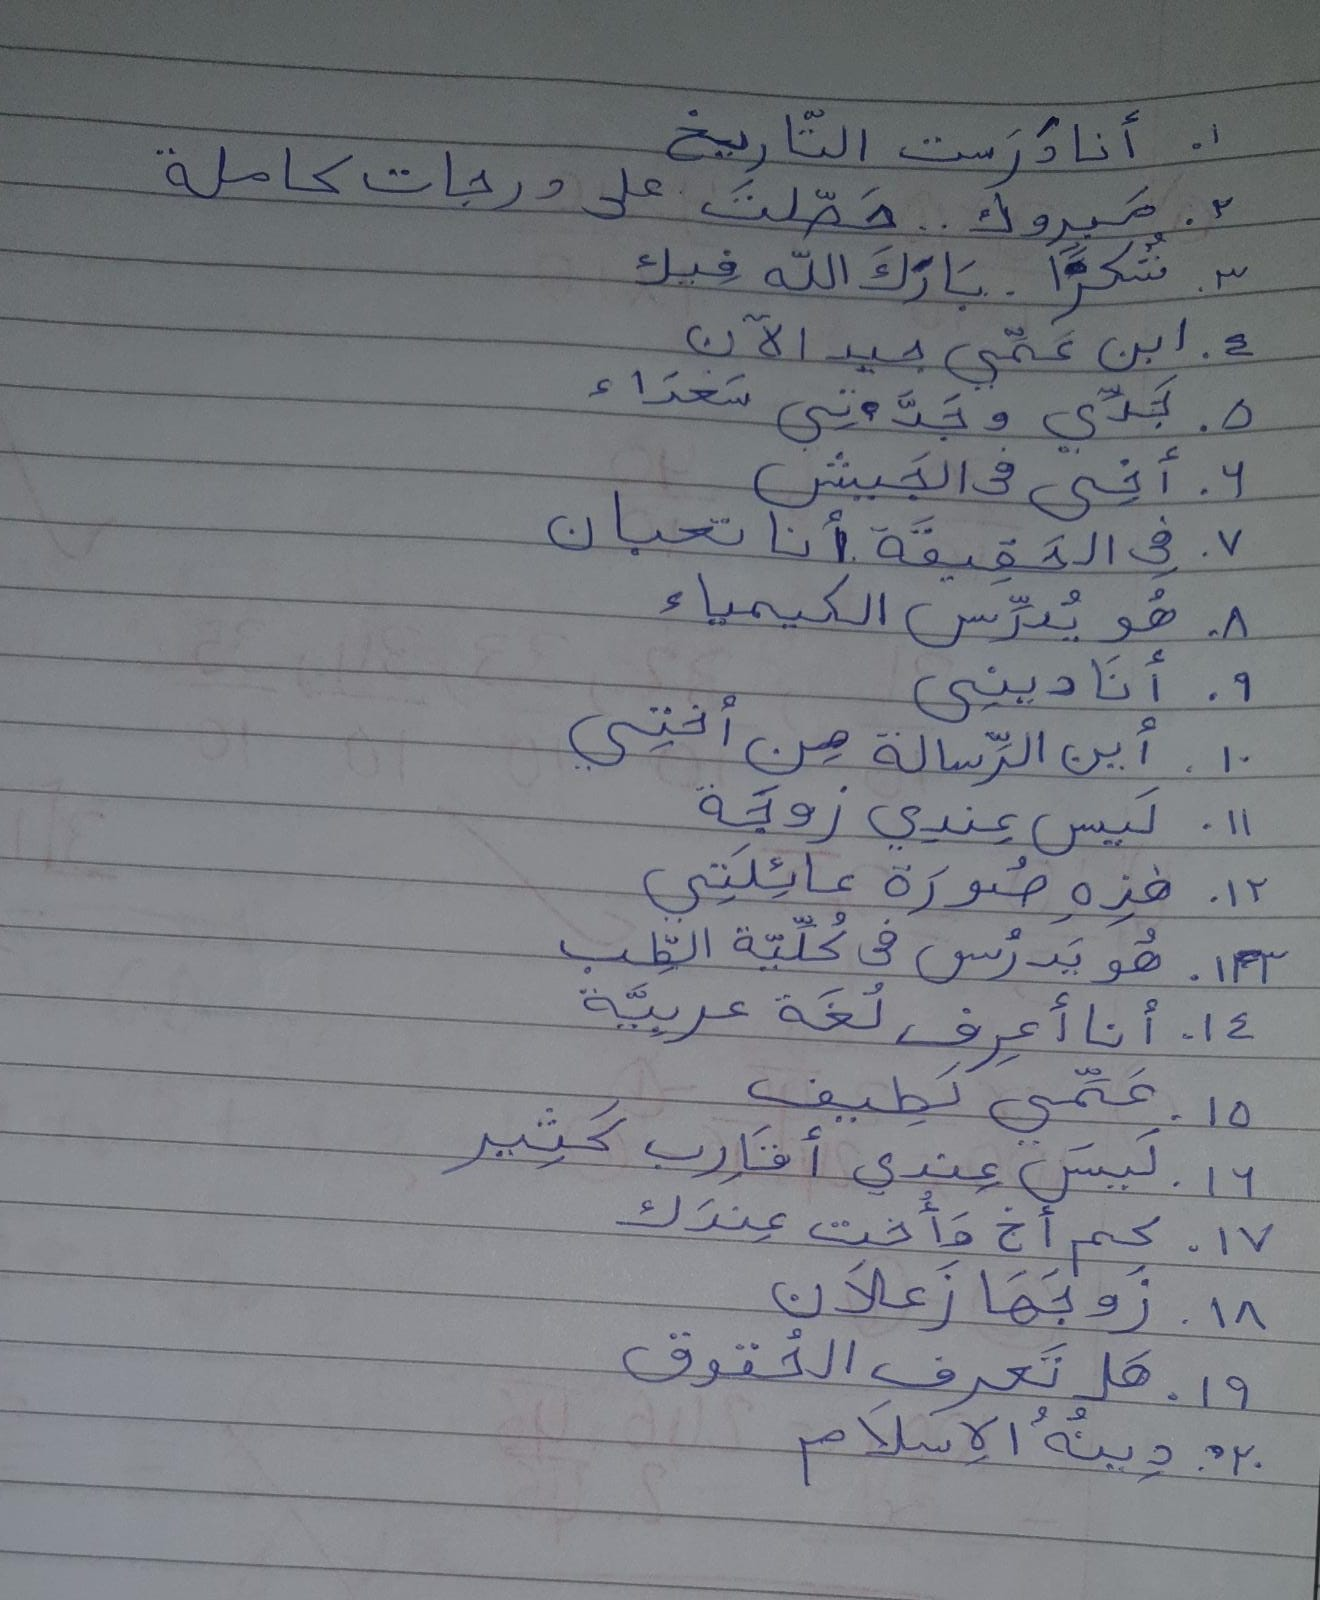 ١. أنا دَرَست التّاريخ
٢. مَبروك .. حَصّلتَ على درجات كاملة
٣. شُكرًا . بَارَكَ اللّه فِيك
٤. ابن عَمِّي جيد الآن
٥. جَدِّي وجَدَّتِي سَعَدَاء
٦. أخِي في الجَيش
٧. فِي الحَقِيقَة أنا تعبان
٨. هُو يُدرِّس الكيمياء
٩. أنَا دينِي
١٠. أين الرِّسالة مِن أختِي
١١. لَيس عِندِي زوجَة
١٢. هَذِهِ صُورَة عائِلَتِي
١٣. هُو يَدرُس في كُلِّيّة الطِّب
١٤. أنا أعرِف لُغَة عربِيَّة
١٥. عَمِّي لَطِيف
١٦. لَيسَ عِندي أقَارِب كَثِير
١٧. كم أخ وَأُخت عِندَك
١٨. زَوجَهَا زَعلَان
١٩. هَل تَعرف الحُقوق
٢٠. دِينُهُ الإسلَام